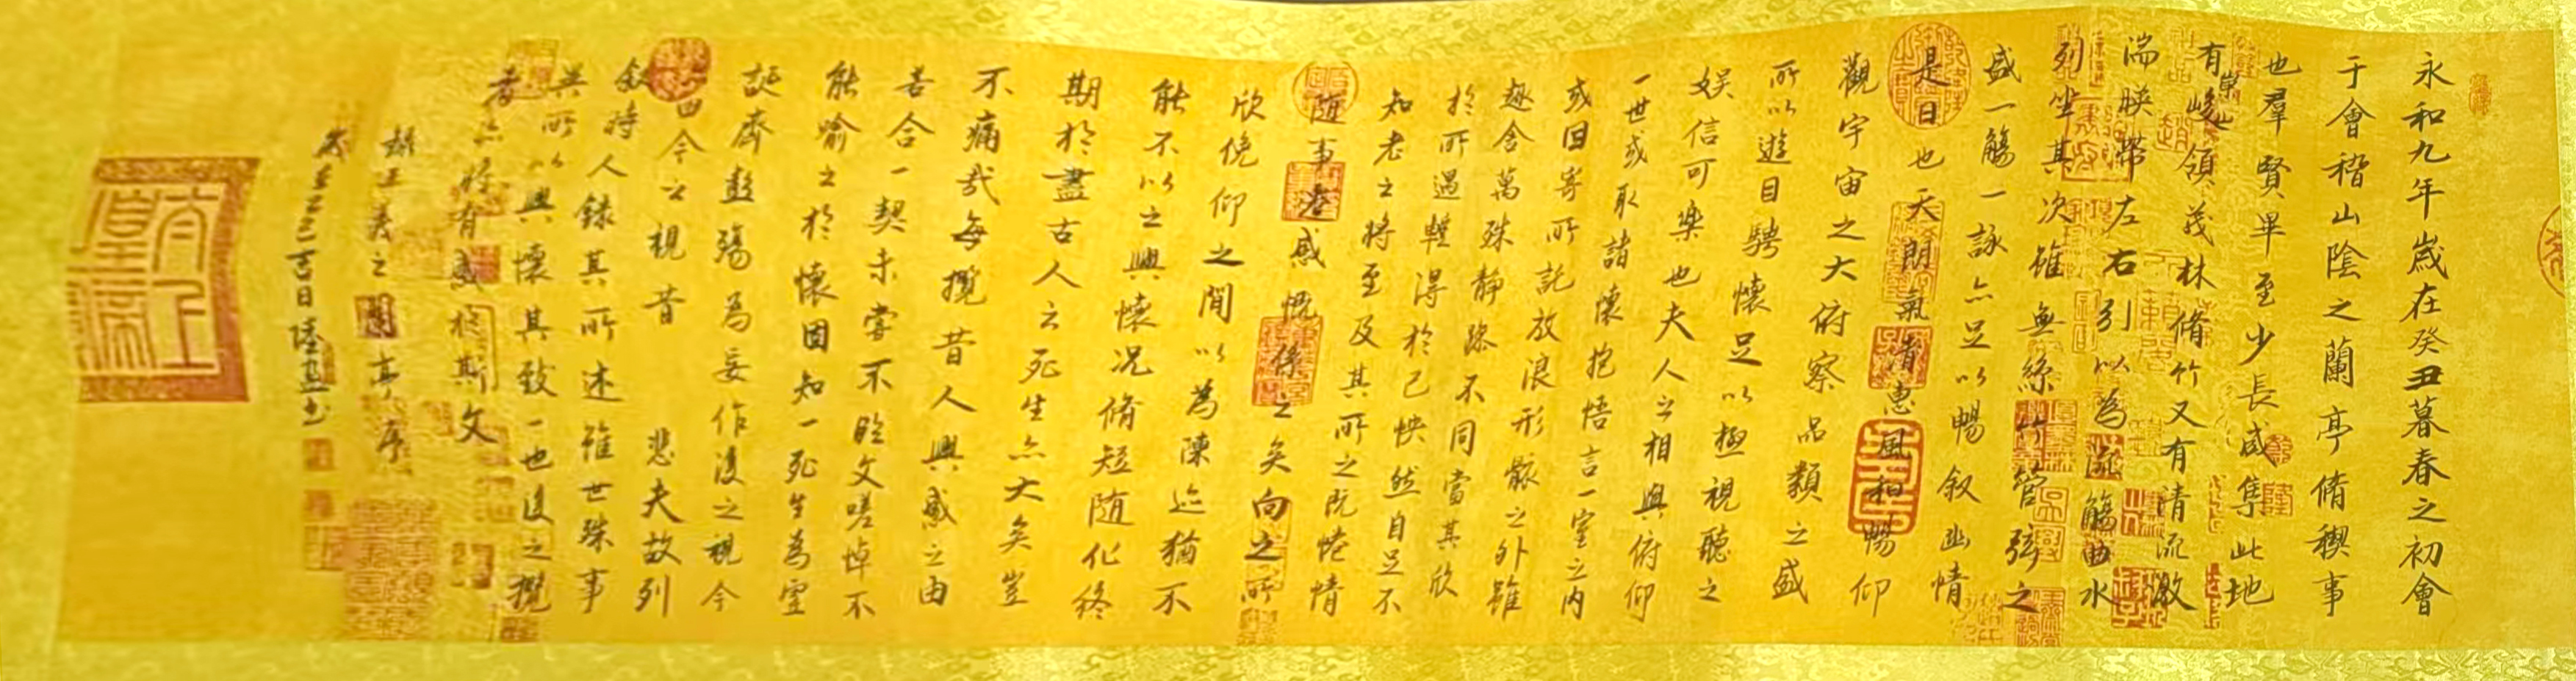 永和九年歲在癸丑暮春之初會
于會稽山陰之蘭亭脩稧事
也羣賢畢至少長咸集此地
有崇山峻領茂林脩竹又有清流激
湍暎帶左右引以為流觴曲水
列坐其次雖無絲竹管弦之
盛一觴一詠亦足以暢叙幽情
是日也天朗氣清惠風和暢仰
觀宇宙之大俯察品類之盛
所以遊目騁懷足以極視聽之
娛信可樂也夫人之相與俯仰
一世或取諸懷抱悟言一室之內
或因寄所託放浪形骸之外雖
趣舍萬殊靜躁不同當其欣
於所遇蹔得於己怏然自足不
知老之將至及其所之既惓情
随事遷感慨係之矣向之所
欣俛仰之閒以為陳迹猶不
能不以之興懷況脩短随化終
期於盡古人云死生亦大矣豈
不痛哉每攬昔人興感之由
若合一契未嘗不臨文嗟悼不
能喻之於懷固知一死生為虛
誕齊彭殤為妄作後之視今
由今之視昔悲夫故列
叙時人錄其所述雖世殊事
異所以興懷其致一也後之攬
者亦將有感於斯文
錄王羲之蘭亭序
歲在乙巳吉日陸書
太上皇帝